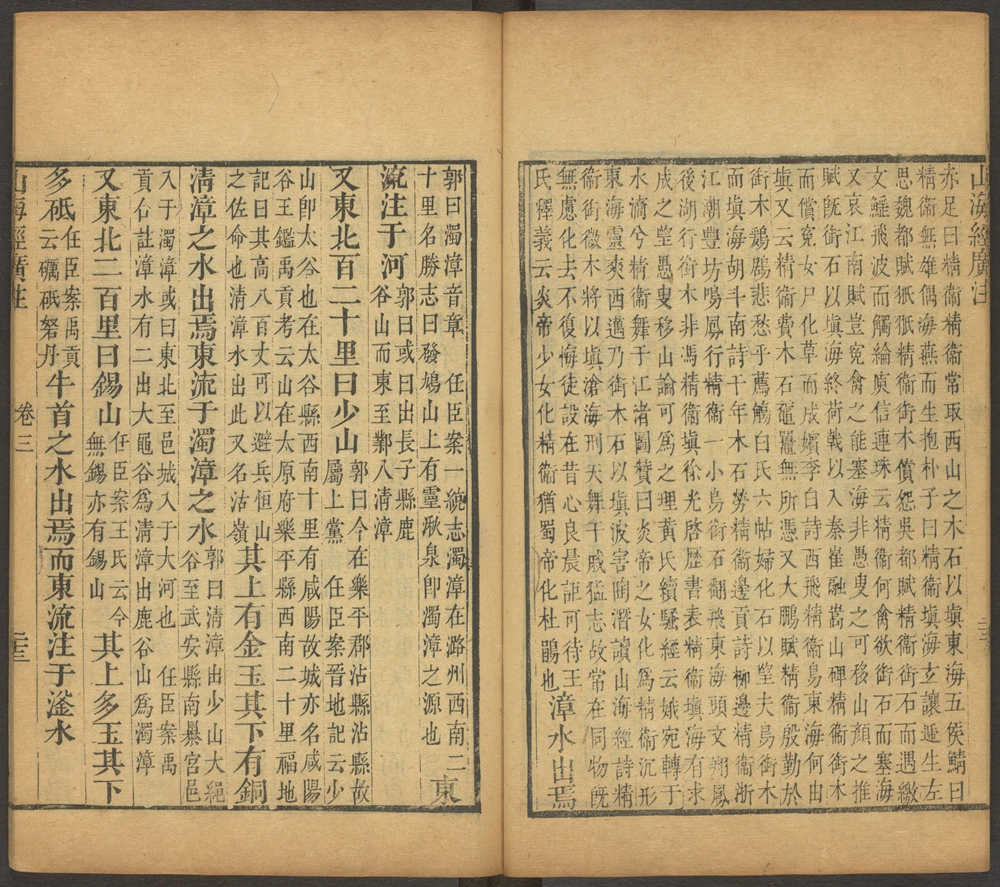 山海經廣注
亦足曰精衛精衛常取西山之木石以塡東海五侯鯖曰
精衛無雄偶海燕而生抱朴子曰精衛塡海玄讓遞生左
思魏都賦㹝㹝精衛銜木償怨吳都賦精衛銜石而遇繳
文鰩飛波而觸綸庾信連珠云精衛何禽欲銜石而塞海
又哀江南賦豈寃禽之能塞海非愚叟之可移山顔之推
賦既銜石以塡海終荷戟以入秦崔融嵩山碑精衛銜木
而償寃女尸化草而成嬪李白詩西飛精衛鳥東海何由
塡又云精衛費木石黿鼉無所憑又大鵬賦精衛殷勤於
銜木鶢鶋悲愁乎薦觴白氏六帖婦化石以望夫鳥銜木
而塡海胡斗南詩千年木石勞精衛邊貢詩柳邊精衛浙
江潮豐坊鳴鳳行精衛一小鳥銜石翻飛東海頭文翔鳳
後湖行銜木非馮精衛塡徐光啓歷書表精衛塡海有求
成之望愚叟移山論可爲之理黃氏續騷經云娥宛轉于
水滴兮精衛舞于江渚圖贊曰炎帝之女化爲精衛沉形
東海靈爽西邁乃銜木石以塡波害陶潛讀山海經詩精
衛銜微木將以塡滄海刑天舞干戚猛志故常在同物既
無慮化去不復悔徒設在昔心良晨詎可待王
氏釋義云炎帝少女化精衛猶蜀帝化杜鵑也漳水出焉
郭曰濁漳音章 任臣案一統志濁漳在潞州西南二
十里名勝志曰發鳩山上有靈湫泉卽濁漳之源也東
流注于河郭曰或曰出長子縣鹿
谷山而東至鄴入清漳
又東北百二十里曰少山郭曰今在樂平郡沾縣沾縣故
屬上黨 任臣案晉地記云少
山卽太谷也在太谷縣西南十里有咸陽故城亦名咸陽
谷王鑑禹貢考云山在太原府樂平縣西南二十里福地
記曰其高八百丈可以避兵恒山
之佐命也清漳水出此又名沾嶺其上有金玉其下有銅
清漳之水出焉東流于濁漳之水郭曰清漳出少山大繩
谷至武安縣南㬥宮邑
入于濁漳或曰東北至邑城入于大河也 任臣案禹
貢合註漳水有二出大黽谷爲清漳出鹿谷山爲濁漳
又東北二百里曰錫山任臣案王氏云今
無錫亦有錫山其上多玉其下
多砥任臣案禹貢
云礪砥砮丹牛首之水出焉而東流注于滏水
山海經廣注 卷三 二十三